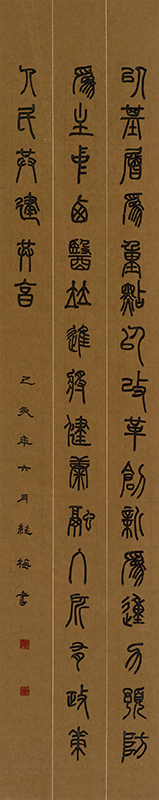 以基層爲重點以改革創新爲動力預防
爲主中西醫竝進將健康融入所有政策
人民共建共享
己亥年六月梅書